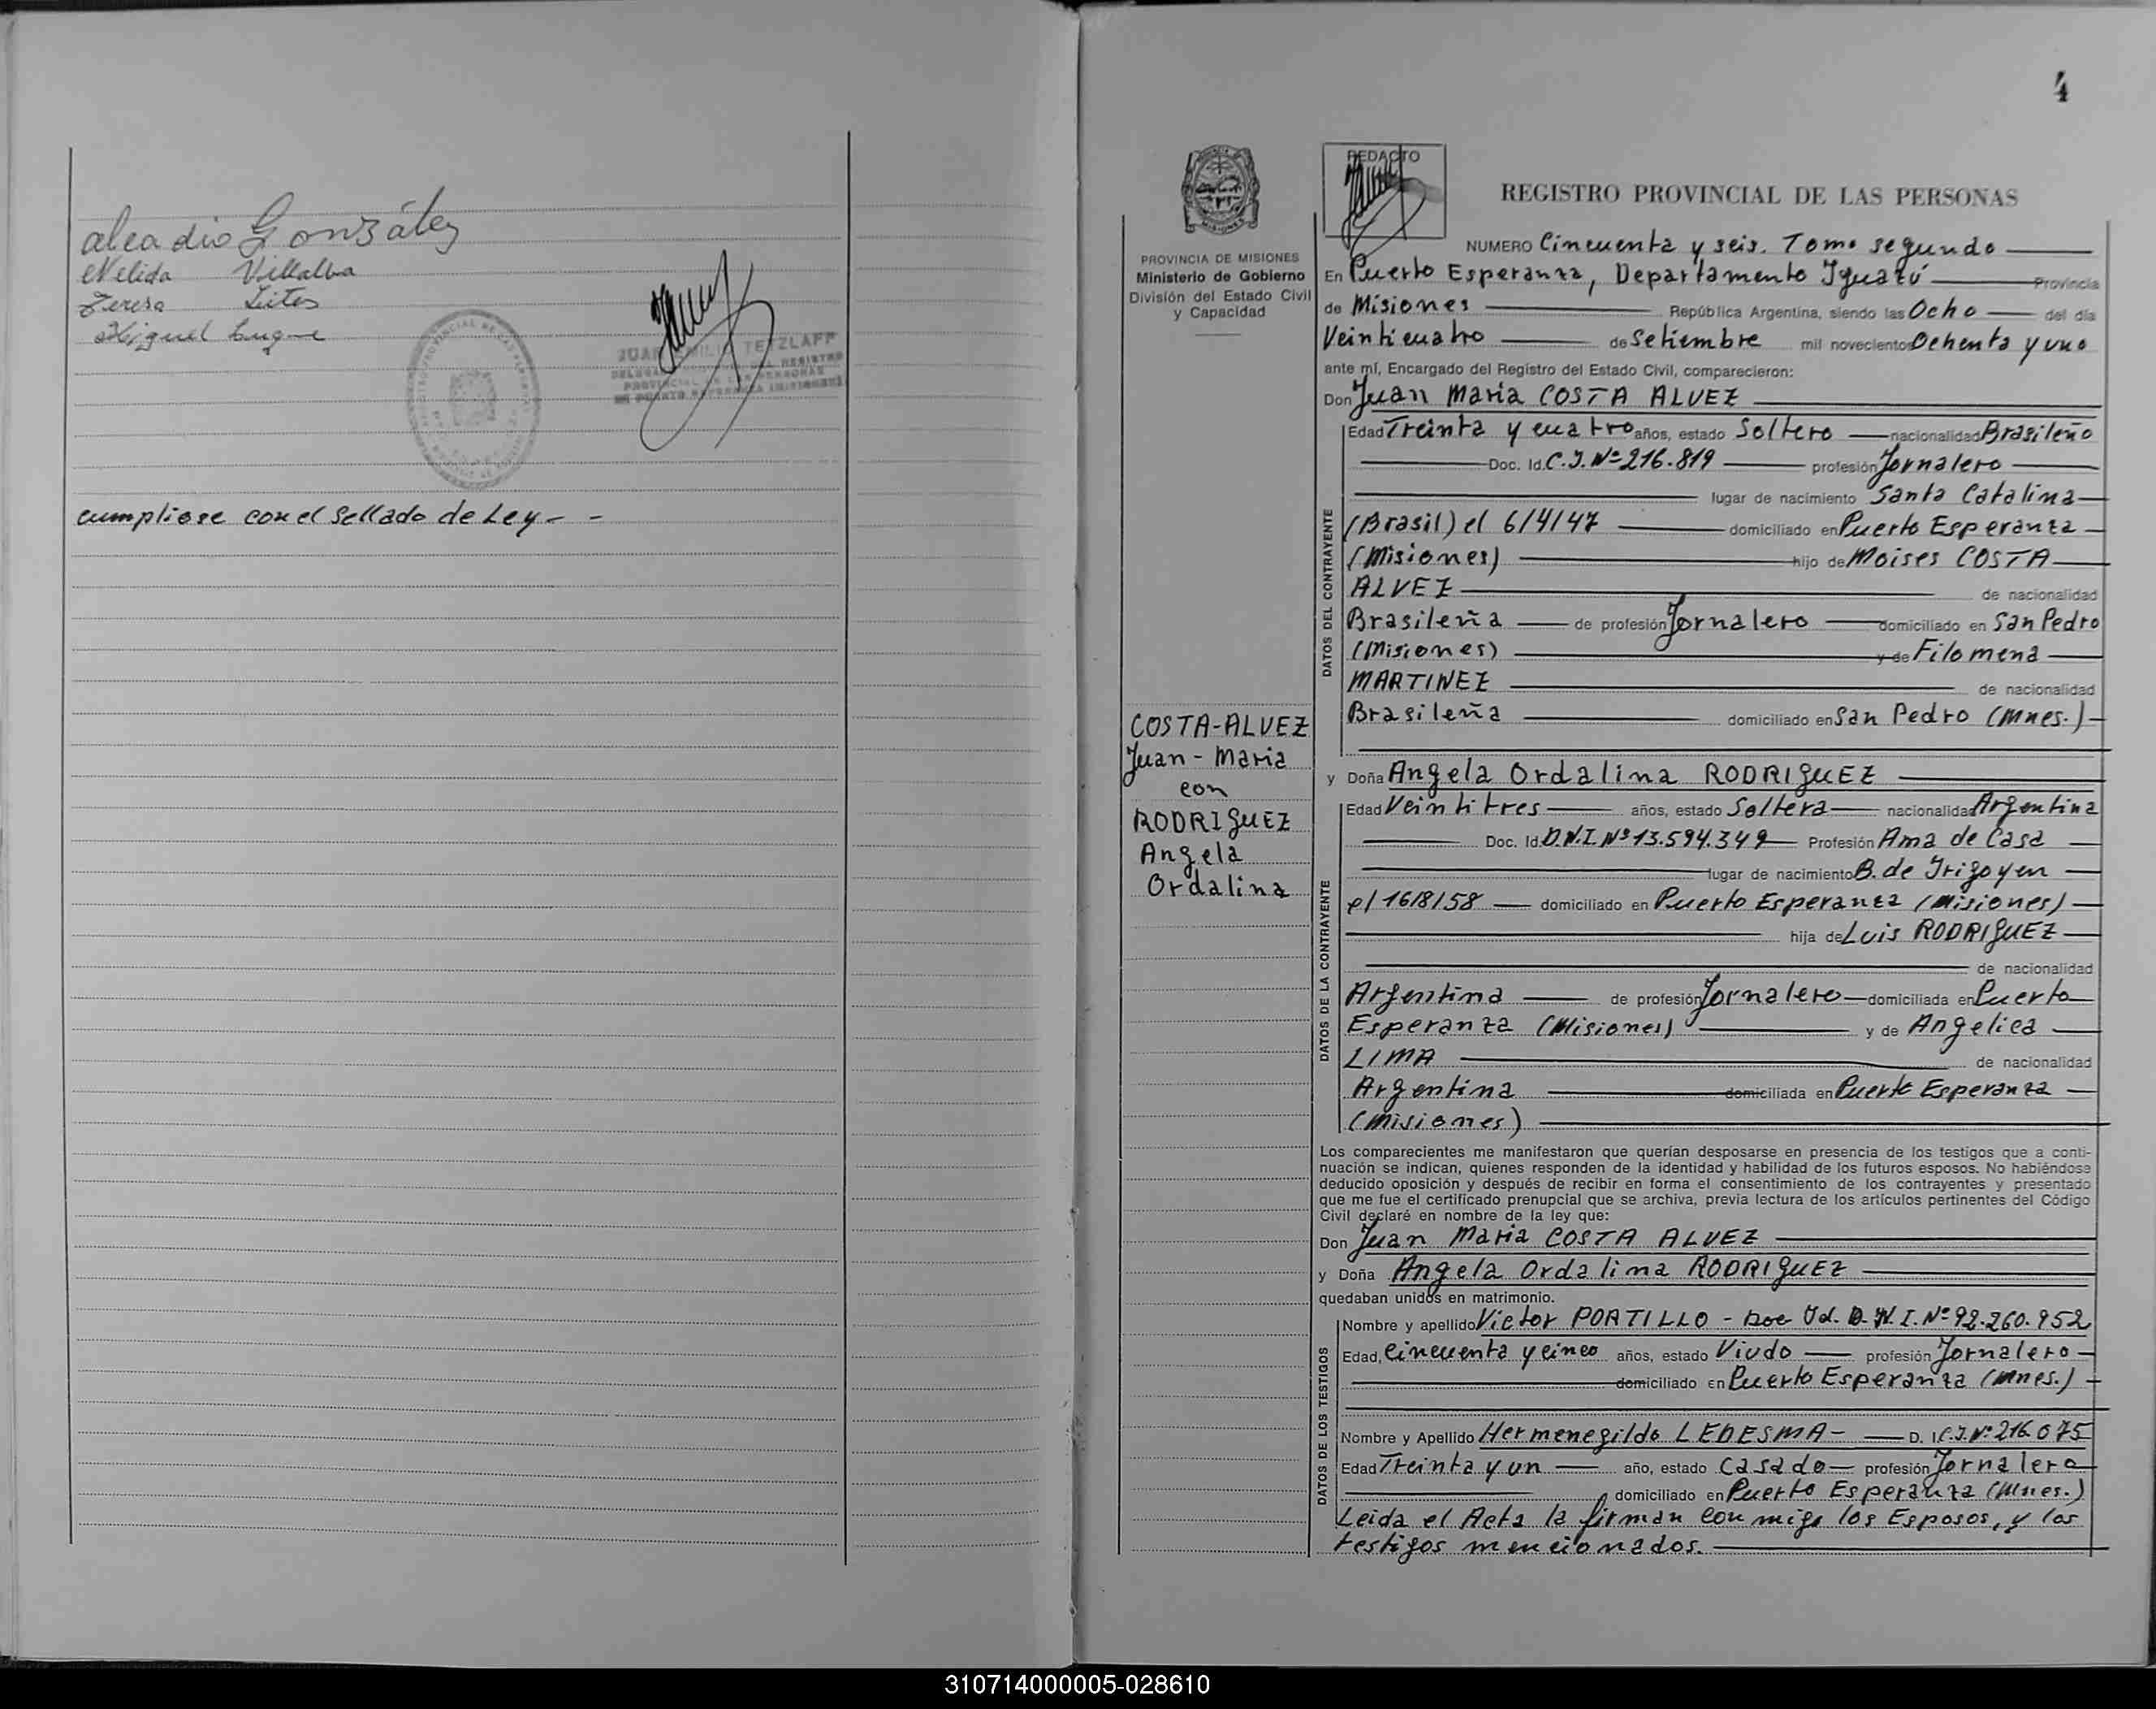 alcadio González
Nelida Villalba
Teresa Leites
Miguel Luque
JUAN EMILIO TETZLAFF
cumpliose con el sellado de Ley - -
4
REDACTO
REGISTRO PROVINCIAL DE LAS PERSONAS
PROVINCIA DE MISIONES
Ministerio de Gobierno
División del Estado Civil
y Capacidad
NUMERO Cincuenta y seis. Tomo segundo
En Puerto Esperanza, Departamento Iguazú Provincia
de Misiones República Argentina, siendo las Ocho del día
Veinticuatro de Setiembre mil novecientos Ochenta y uno
ante mí, Encargado del Registro del Estado Civil, comparecieron:
Don Juan Maria COSTA ALVEZ
Edad Treinta y cuatro años, estado Soltero nacionalidad Brasileño
Doc. Id. C.I. Nº 216.819 profesión Jornalero
lugar de nacimiento Santa Catalina
(Brasil) el 6/4/47 domiciliado en Puerto Esperanza
(Misiones) hijo de Moises COSTA
ALVEZ de nacionalidad
Brasileña de profesión Jornalero domiciliado en San Pedro
(Misiones) y de Filomena
MARTINEZ de nacionalidad
Brasileña domiciliado en San Pedro (Mnes.)
DATOS DEL CONTRAYENTE
COSTA-ALVEZ
Juan-Maria
con
RODRIGUEZ
Angela
Ordalina
y Doña Angela Ordalina RODRIGUEZ
Edad Veintitres años, estado Soltera nacionalidad Argentina
Doc. Id. D.N.I. Nº 13.594.349 Profesión Ama de Casa
lugar de nacimiento B. de Irigoyen
el 16/8/58 domiciliado en Puerto Esperanza (Misiones)
hija de Luis RODRIGUEZ
de nacionalidad
Argentina de profesión Jornalero domiciliada en Puerto
Esperanza (Misiones) y de Angelica
LIMA de nacionalidad
Argentina domiciliada en Puerto Esperanza
(Misiones)
DATOS DE LA CONTRAYENTE
Los comparecientes me manifestaron que querían desposarse en presencia de los testigos que a conti-
nuación se indican, quienes responden de la identidad y habilidad de los futuros esposos. No habiéndose
deducido oposición y después de recibir en forma el consentimiento de los contrayentes y presentado
que me fue el certificado prenupcial que se archiva, previa lectura de los artículos pertinentes del Código
Civil declaré en nombre de la ley que:
Don Juan Maria COSTA ALVEZ
y Doña Angela Ordalina RODRIGUEZ
quedaban unidos en matrimonio.
Nombre y apellido Victor PORTILLO - Doc Id. D.N.I. Nº 92.260.952
Edad, Cincuenta y cinco años, estado Viudo profesión Jornalero
domiciliado en Puerto Esperanza (Mnes.)
Nombre y Apellido Hermenegildo LEDESMA - D. I. C.I. Nº 216.075
Edad Treinta y un año, estado Casado profesión Jornalero
domiciliado en Puerto Esperanza (Mnes.)
DATOS DE LOS TESTIGOS
Leida el Acta la firman conmigo los Esposos, y los
testigos mencionados.
310714000005-028610